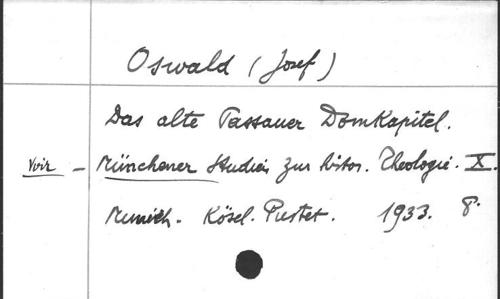 Oswald (Josef)
Das alte Passauer Domkapitel.
Voir – Münchener Studien zur histor. Theologie. X.
Munich. Kösel. Pustet. 1933. 8°.